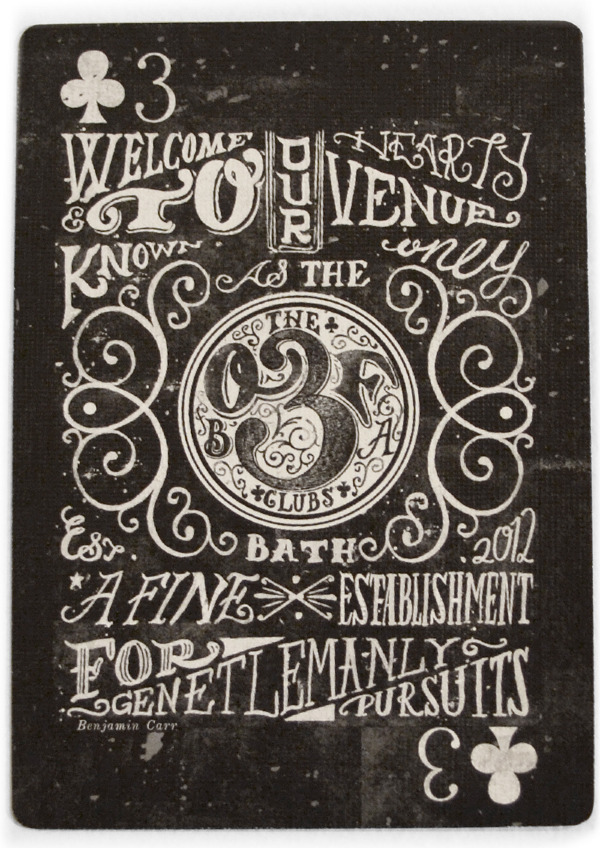 3
WELCOME TO OUR HEARTY VENUE
KNOWN only AS THE
THE
O 3 F
B A
CLUBS
Est. BATH 2012
A FINE ESTABLISHMENT
FOR GENETLEMANLY PURSUITS
Benjamin Carr
3